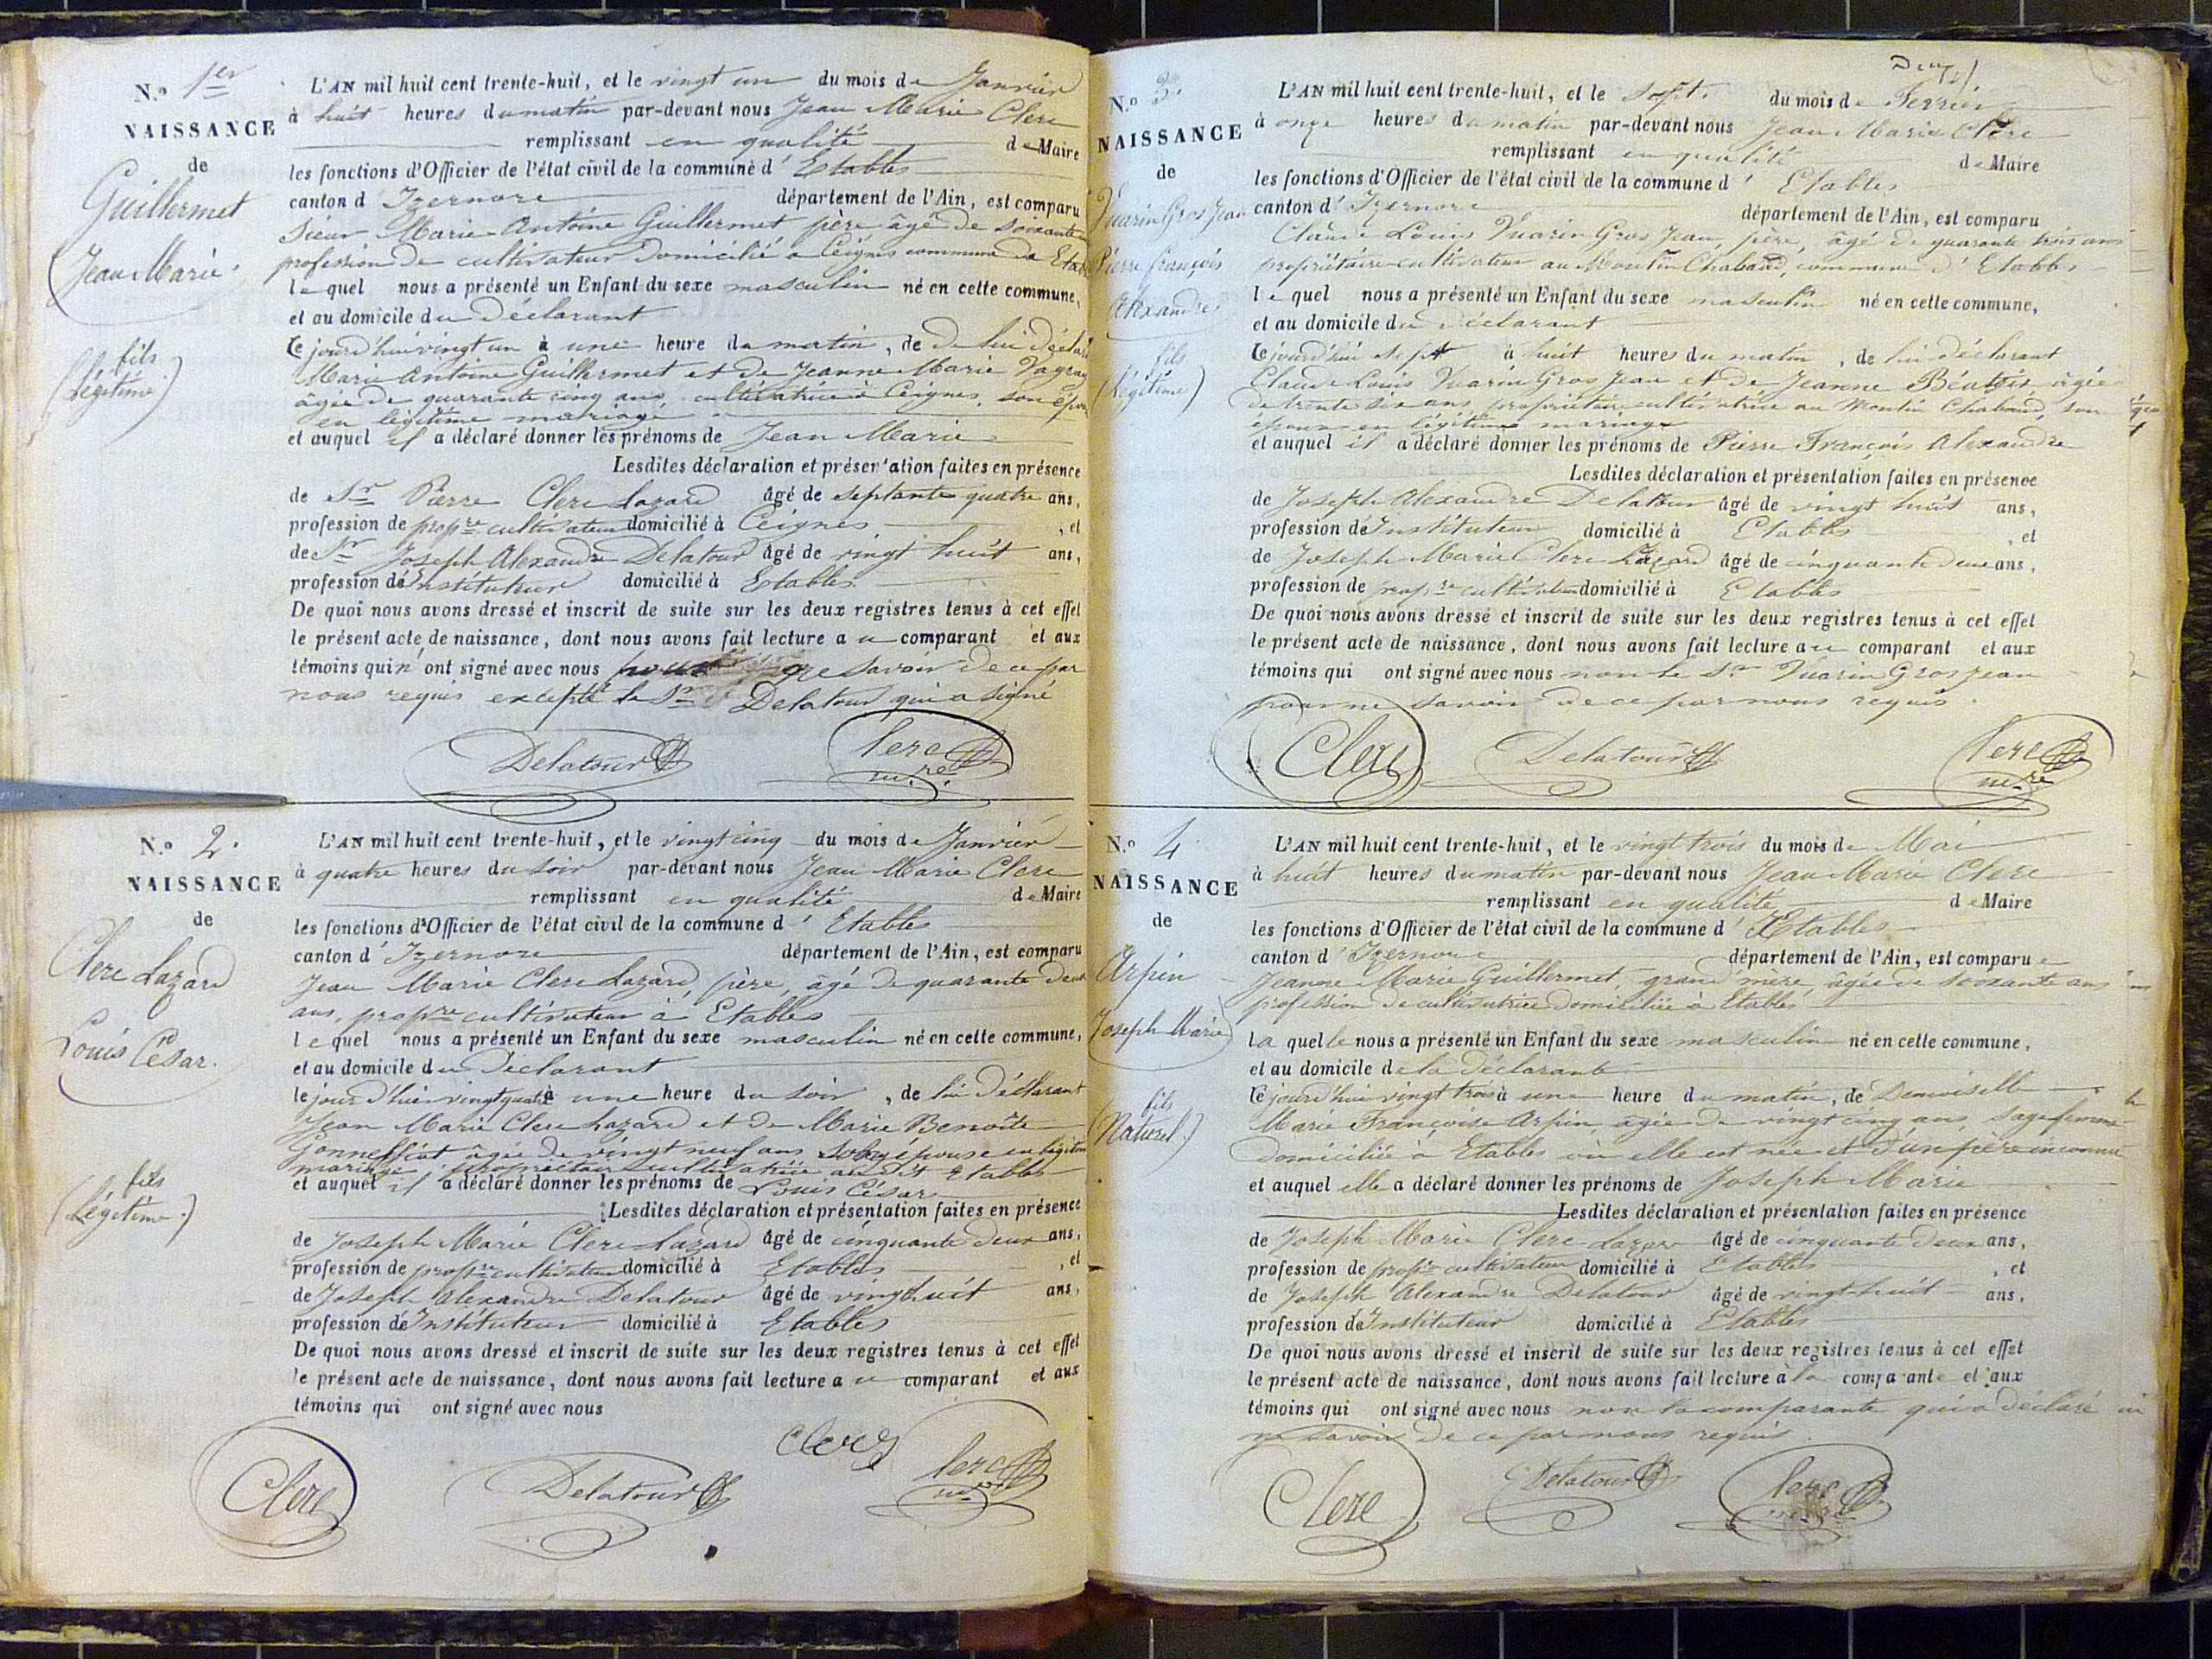 N.o 1er
NAISSANCE
de
Guillermet
Jean Marie
fils
(Légitime.)
L'AN mil huit cent trente-huit, et le vingt un du mois de Janvier
à huit heures du matin par-devant nous Jean Marie Clerc
remplissant en qualité de Maire
les fonctions d'Officier de l'état civil de la commune d'Etables
canton d'Izernore département de l'Ain, est comparu
Sieur Marie Antoine Guillermet père âgé de soixante
profession de cultivateur Domicilié à Ceignes commune de Etab
lequel nous a présenté un Enfant du sexe masculin né en cette commune,
et au domicile du Déclarant
Cejourd'hui vingt un à une heure du matin, de de lui déclar
Marie Antoine Guillermet et de Jeanne Marie
âgée de quarante cinq ans, cultivatrice à Ceignes, son épou
en légitime mariage
et auquel il a déclaré donner les prénoms de Jean Marie
Lesdites déclaration et présentation faites en présence
de Sr Pierre Clerc Lazard âgé de septante quatre ans,
profession de propre cultivateur domicilié à Ceignes, et
de Sr Joseph Alexandre Delatour âgé de vingt huit ans,
profession de Instituteur domicilié à Etables
De quoi nous avons dressé et inscrit de suite sur les deux registres tenus à cet effet
le présent acte de naissance, dont nous avons fait lecture au comparant et aux
témoins qui n'ont signé avec nous pour ne savoir de ce par
nous requis excepté le Sr Delatour qui a signé
Delatour Clerc
mre
N.o 2.
NAISSANCE
de
Clerc Lazard
Louis César.
fils
(Légitime.)
L'AN mil huit cent trente-huit, et le vingt cinq du mois de Janvier
à quatre heures du soir par-devant nous Jean Marie Clerc
remplissant en qualité de Maire
les fonctions d'Officier de l'état civil de la commune d'Etables
canton d'Izernore département de l'Ain, est comparu
Jean Marie Clerc Lazard, père, âgé de quarante deux
ans, propre cultivateur à Etables
lequel nous a présenté un Enfant du sexe masculin né en cette commune,
et au domicile du Déclarant
le jour d'hier vingt quatre à une heure du soir, de lui déclarant
Jean Marie Clerc Lazard et de Marie Benoîte
âgée de vingt neuf ans son épouse en légitime
mariage, propriétaire cultivatrice au dit Etables
et auquel il a déclaré donner les prénoms de Louis César
Lesdites déclaration et présentation faites en présence
de Joseph Marie Clerc Lazard âgé de cinquante deux ans,
profession de propre cultivateur domicilié à Etables, et
de Joseph Alexandre Delatour âgé de vingt huit ans,
profession de Instituteur domicilié à Etables
De quoi nous avons dressé et inscrit de suite sur les deux registres tenus à cet effet
le présent acte de naissance, dont nous avons fait lecture au comparant et aux
témoins qui ont signé avec nous
Clerc
Clerc Delatour Clerc
mre
N.o 3.
NAISSANCE
de
Vuarin Gros Jean
Pierre françois
Alexandre
fils
(Légitime)
L'AN mil huit cent trente-huit, et le sept. du mois de Fevrier
à onze heures du matin par-devant nous Jean Marie Clerc
remplissant en qualité de Maire
les fonctions d'Officier de l'état civil de la commune d'Etables
canton d'Izernore département de l'Ain, est comparu
Claude Louis Vuarin Gros Jean, père, âgé de quarante trois ans
propriétaire cultivateur au Moulin Chabaud, commune d'Etables
lequel nous a présenté un Enfant du sexe masculin né en cette commune,
et au domicile du déclarant
Cejourd'hui sept à huit heures du matin, de lui déclarant
Claude Louis Vuarin Gros Jean et de Jeanne âgée
de trente six ans, propriétaire cultivatrice au Moulin Chabaud, son
épouse en légitime mariage
et auquel il a déclaré donner les prénoms de Pierre François Alexandre
Lesdites déclaration et présentation faites en présence
de Joseph Alexandre Delatour âgé de vingt huit ans,
profession de Instituteur domicilié à Etables, et
de Joseph Marie Clerc Lazard âgé de cinquante deux ans,
profession de propre cultivateur domicilié à Etables
De quoi nous avons dressé et inscrit de suite sur les deux registres tenus à cet effet
le présent acte de naissance, dont nous avons fait lecture au comparant et aux
témoins qui ont signé avec nous non le Sr Vuarin Gros Jean
pour ne savoir de ce par nous requis.
Clerc Delatour Clerc
mre
N.o 4
NAISSANCE
de
Arpin
Joseph Marie
fils
(Naturel.)
L'AN mil huit cent trente-huit, et le vingt trois du mois de Mai
à huit heures du matin par-devant nous Jean Marie Clerc
remplissant en qualité de Maire
les fonctions d'Officier de l'état civil de la commune d'Etables
canton d'Izernore département de l'Ain, est comparue
Jeanne Marie Guillermet, grand'mère, âgée de soixante ans
profession de cultivatrice domiciliée à Etables
laquelle nous a présenté un Enfant du sexe masculin né en cette commune,
et au domicile de la déclarante
Cejourd'hui vingt trois à une heure du matin, de Demoiselle
Marie Françoise Arpin, âgée de vingt cinq ans, sagefemme
domiciliée à Etables où elle est née et d'un père inconnu
et auquel elle a déclaré donner les prénoms de Joseph Marie
Lesdites déclaration et présentation faites en présence
de Joseph Marie Clerc Lazard âgé de cinquante deux ans,
profession de propre cultivateur domicilié à Etables, et
de Joseph Alexandre Delatour âgé de vingt-huit ans,
profession de Instituteur domicilié à Etables
De quoi nous avons dressé et inscrit de suite sur les deux registres tenus à cet effet
le présent acte de naissance, dont nous avons fait lecture à la comparante et aux
témoins qui ont signé avec nous non la comparante qui a déclaré
ne savoir de ce par nous requis.
Clerc Delatour Clerc